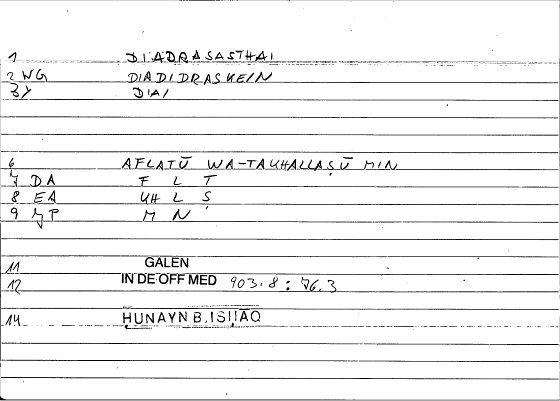 1 DIADRASASTHAI
2 WG DIADIDRASKEIN
3 DIAI
6 AFLATŪ WA-TAUHALLAṢŪ MIN
7 DA F L T
8 EA UH L Ṣ
9 M N
11 GALEN
12 IN DE OFF MED 903.8 : 76.3
14 ḤUNAYN B.ISḤĀQ